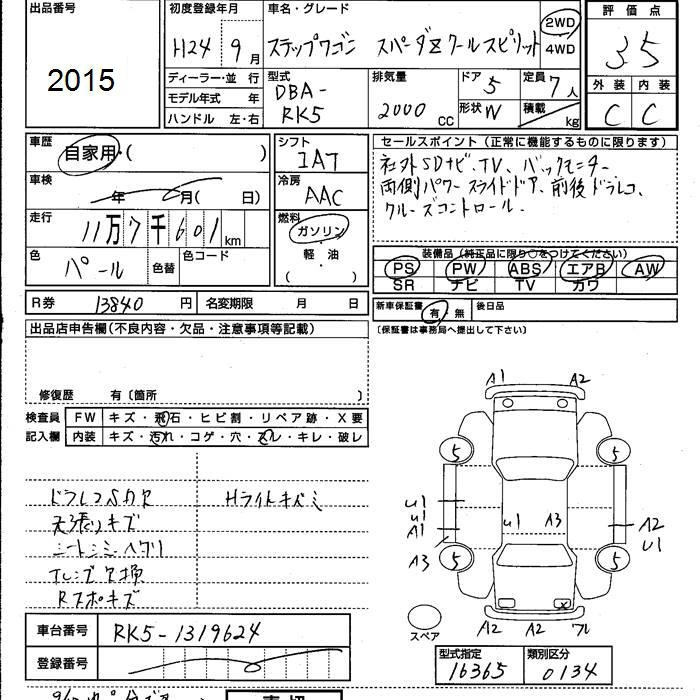 出品番号
2015
初度登録年月
H24 9月
車名・グレード
ステップワゴン スパーダZクールスピリット
2WD
4WD
評価点
3.5
外装 内装
C C
ディーラー・並行
モデル年式 年
ハンドル 左・右
型式
DBA-
RK5
排気量
2000 CC
ドア 5
形状 W
定員 7人
積載 kg
車歴
自家用・( )
車検
年 月( 日)
走行
11万7千601km
色
パール
色替
色コード
シフト
IAT
冷房
AAC
燃料
ガソリン
軽・油
( )
セールスポイント(正常に機能するものに限ります)
社外SDナビ、TV、バックモニター
両側パワースライドドア、前後ドラレコ、
クルーズコントロール.
装備品(純正品に限り○をつけてください)
PS PW ABS エアB AW
SR ナビ TV カワ
R券 13840円 名変期限 月 日
新車保証書 有・無 後日品
〔保証書は事務局へ提出して下さい〕
出品店申告欄(不良内容・欠品・注意事項等記載)
修復歴 有〔箇所 〕
検査員
記入欄
FW キズ・飛石・ヒビ割・リペア跡・X要
内装 キズ・汚れ・コゲ・穴・スレ・キレ・破レ
ドラレコSD欠
Hライトキズミ
天張りキズ
シートシミヘタリ
Rスポキズ
車台番号 RK5-1319624
登録番号
A1 A2
5 5
U1
U1
A1
U1 A3
A2
U1
A3
5 5
X
スペア
A2 A2 ワレ
型式指定 16365
類別区分 0134